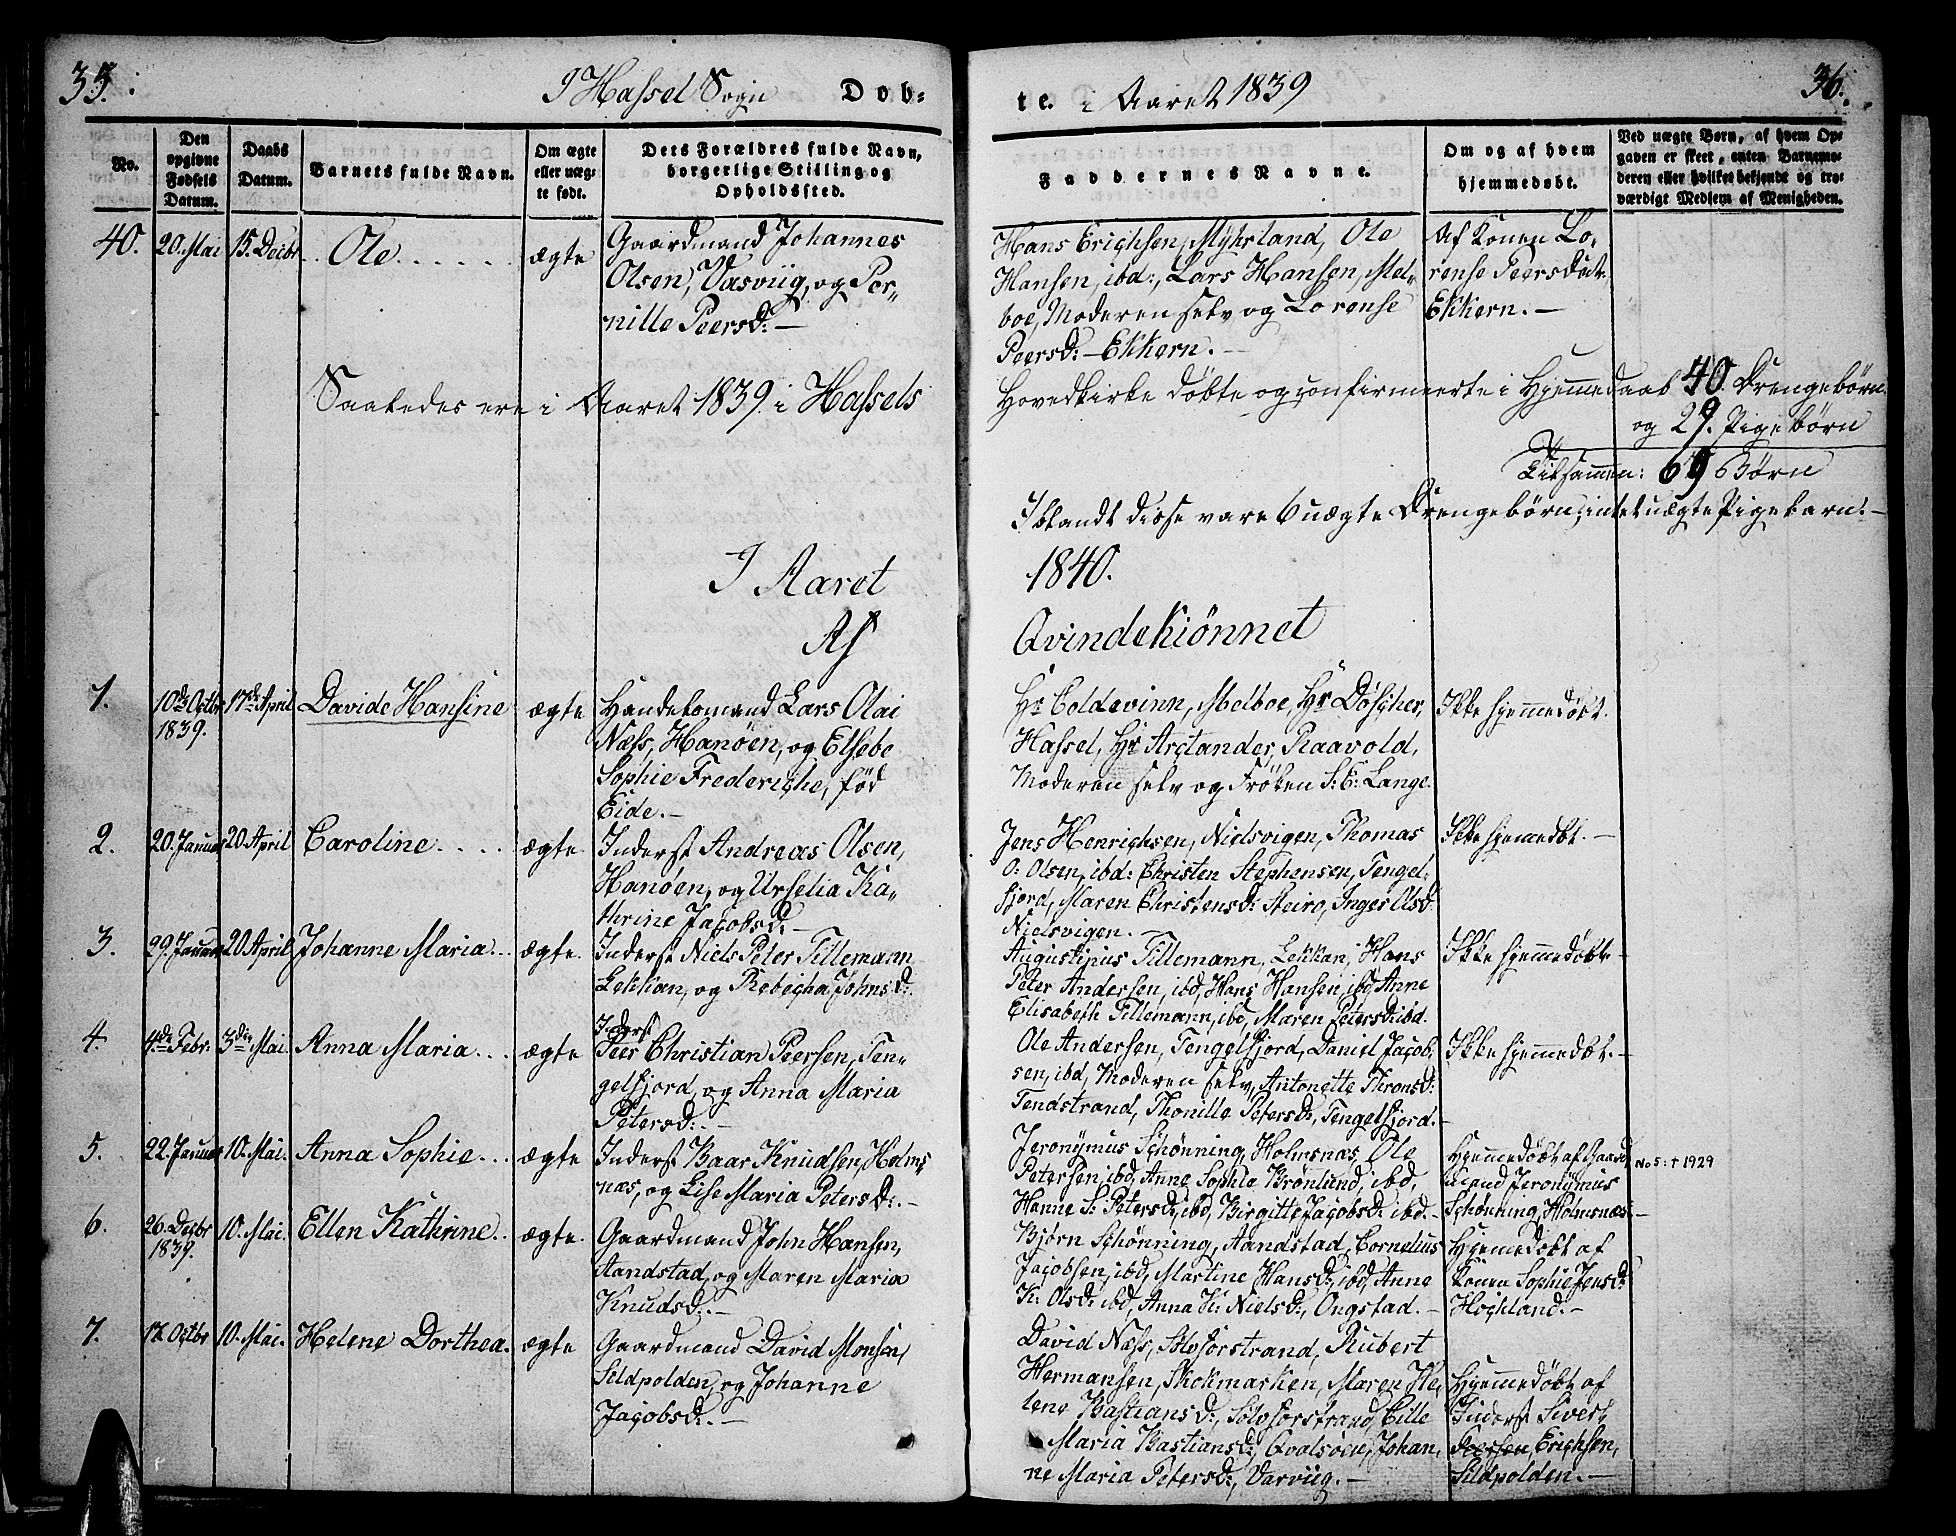 35.
I Hassel Sogn
Dob-
te. i Aaret 1839
36.
No.
Den opgivne Fødsels Datum.
Daabs Datum.
Barnets fulde Navn.
Om ægte eller uæg-te født.
Dets Forældres fulde Navn, borgerlige Stilling og Opholdssted.
Faddernes Navne.
Om og af hvem hjemmedøbt.
Ved uægte Børn, af hvem Op-
gaven er skeet, enten Barnemo-
deren eller hvilket bekjendt og tro-
værdigt Medlem af Menigheden.
40. 20. Mai 15. Decbr Ole ægte
Gaardmand Johannes
Olsen, Vasviig, og Per-
nille Peersd: –
Hans Erichsen, Myhrland, Ole
Hansen, ibd:, Lars Hansen, Mel-
boe, Moderen selv og Lorense
Peersd: – Ekkern. –
Af Konen Lo-
rense Peersdat:
Ekkern. –
Saaledes ere i Aaret 1839 i Hassels
Hovedkirke døbte og confirmeerte i Hjemmedaab 40. Drengebørn
og 29. Pigebørn
Tilsammen: 69 Børn
Iblandt disse vare 6 uægte Drengebørn, intet uægte Pigebarn. –
I Aaret
1840.
Af
Qvindekiønnet
1. 10de Octbr 1839. 17de April Davide Hansine ægte
Handelsmand Lars Olai
Næss, Hanøen, og Elsebe
Sophie Frederiche, fød
Eide. –
Hr Coldevinn, Melboe, Hr Döscher,
Hassel, Hr Arctander, Raavold,
Moderen selv og Frøken S: E: Lange.
Ikke hjemmedøbt.
2. 20. Januar 20 April Caroline ægte.
Inderst Andreas Olsen,
Hanøen, og Urselia Ka-
thrine Jacobsd: –
Jens Henrichsen, Nielsvigen, Thomas
O: Olsen, ibd: Christen Stephensen, Tengel-
fjord, Maren Christensd: Steiro, Inger Olsd:
Nielsvigen.
Ikke hjemmedøbt. –
3. 29. Januar 20 April Johanne Maria ægte.
Inderst Niels Peter Tillemann
Lekkan, og Rebecha Johnsd:
Augustinus Tillemann, Lekkan, Hans
Peter Andersen, ibd, Hans Hansen, ibd Anne
Elisabeth Tillemann, ibd, Maren Petersd: ibd.
Ikke hjemmedøbt –
4. 4de Febr. 3die Mai. Anna Maria ægte
Inderst
Peer Christian Peersen, Ten-
gelfjord, og Anna Maria
Petersd: –
Ole Andersen, Tengelfjord, Daniel Jacob-
sen, ibd, Moderen selv, Antonette Thronsd:
Tendstrand, Thonille Petersd:, Tengelfjord. –
Ikke hjemmedøbt. –
5. 22. Januar 10. Mai. Anna Sophie ægte
Inderst Baar Knudsen, Holms-
næs, og Lise Maria Petersd: –
Jeronymus Schönning, Holmsnæs, Ole
Petersen, ibd, Anne Sophie Brönlund, ibd,
Hanne S: Petersd:, ibd, Birgitte Jacobsd: ibd. –
Hjemmedøbt af Gaard-
mand Jeronymus
Schönning, Holmsnæs. –
No 5: † 1929
6. 26. Decbr 1839. 10. Mai. Ellen Kathrine ægte.
Gaardmand John Hansen,
Aandstad, og Maren Maria
Knudsd: –
Bjørn Schönning, Aandstad, Cornelius
Jacobsen, ibd, Martine Hansd:, ibd, Anne
K: Olsd: ibd, Anna K: Nielsd:, Ongstad. –
Hjemmedøbt af
Konen Sophie Jensd:
Hochland. –
7. 17. Octbr 10. Mai. Helene Dorthea. ægte
Gaardmand David Monsen,
Sildpolden, og Johanne
Jacobsd: –
David Næss, Sølvforstrand, Rubert
Hermansen, Stokmarken, Maren He-
lene Bastiansd:, Sølvforstrand, Cille
Maria Bastiansd:, Qvalsøen, Johan-
ne Maria Petersd:, Varviig. –
Hjemmedøbt af
Inderst Siver
Peersen Erichsen,
Sildpolden. –